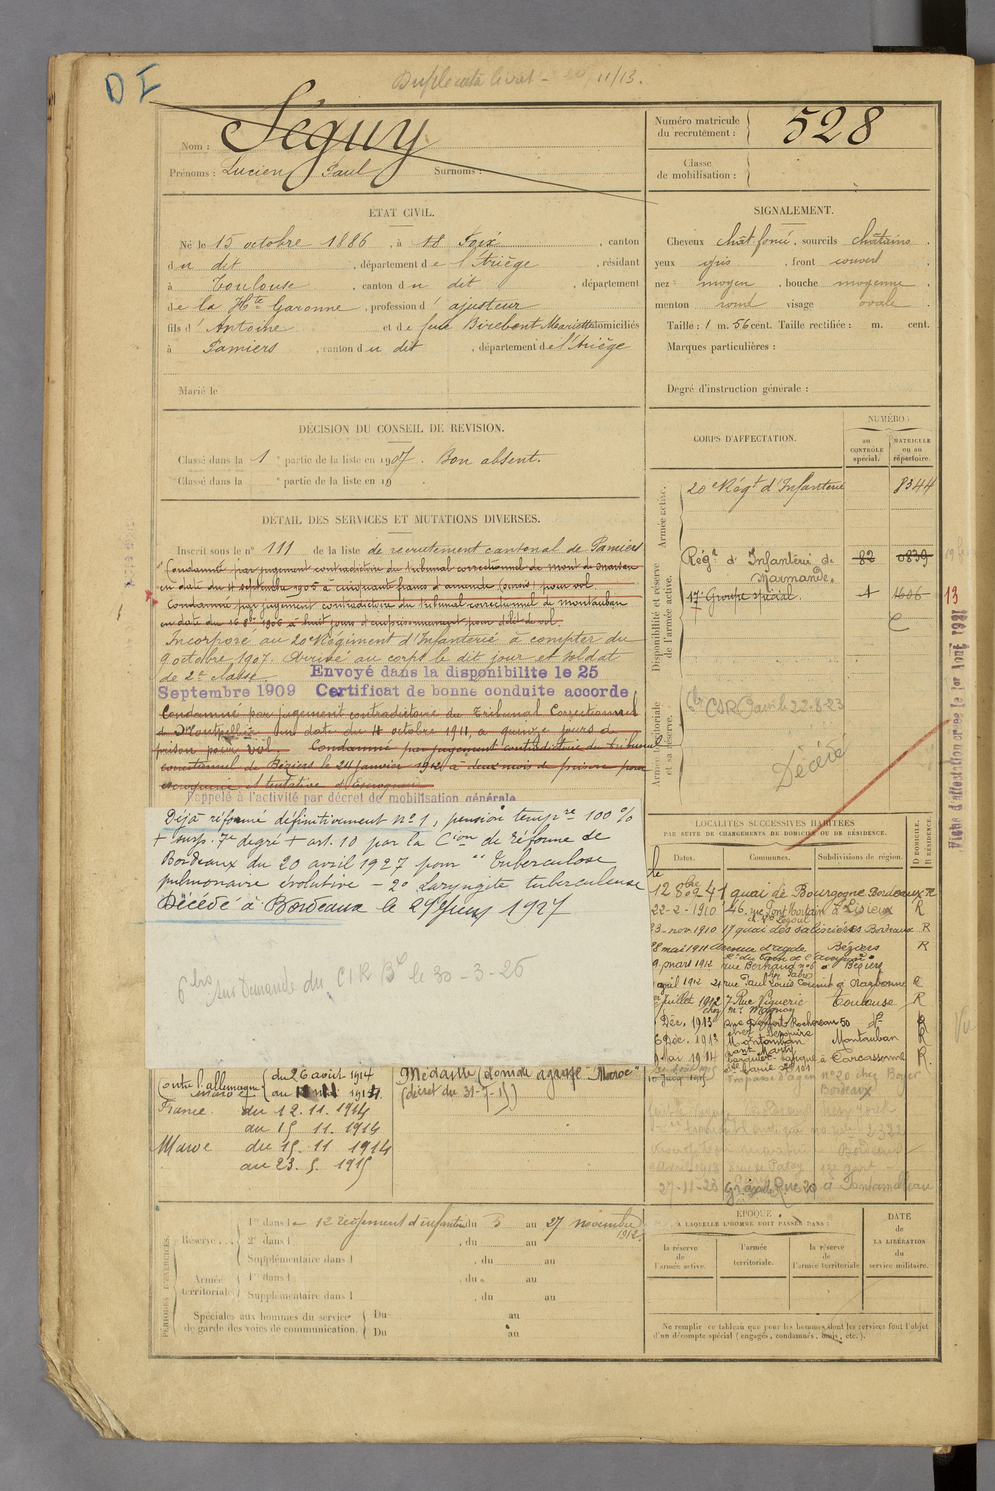 D I
Duplicata livret - 11/13.
Nom : Séguy
Prénoms : Lucien Paul Surnoms :
Numéro matricule du recrutement : 528
Classe de mobilisation :
ÉTAT CIVIL.
Né le 15 octobre 1886, à Foix, canton
du dit, département de l'Ariège, résidant
à Toulouse, canton du dit, département
de la Hte Garonne, profession d'ajusteur
fils d'Antoine et de feue Birebent Mariette domiciliés
à Pamiers, canton du dit, département de l'Ariège
Marié le
SIGNALEMENT.
Cheveux chât foncé, sourcils châtains.
yeux gris, front couvert
nez moyen, bouche moyenne
menton rond visage ovale
Taille : 1 m. 56 cent. Taille rectifiée : m. cent.
Marques particulières :
Degré d'instruction générale :
DÉCISION DU CONSEIL DE REVISION.
Classé dans la 1e partie de la liste en 1907. Bon absent.
Classé dans la e partie de la liste en 19
CORPS D'AFFECTATION.
NUMÉRO :
au CONTRÔLE spécial.
MATRICULE ou au répertoire.
Armée active.
20e Régt d'Infanterie 8344
Disponibilité et réserve de l'armée active.
Régt d'Infanterie de Marmande. 82 0839
17e Groupe spécial. 1 1606
13
Armée territoriale et sa réserve.
CSR Paris le 22-8-23
Décédé
Fiche d'affestation créée le 1er Août 1921
DÉTAIL DES SERVICES ET MUTATIONS DIVERSES.
Inscrit sous le n° 111 de la liste de recrutement cantonal de Pamiers
Condamné par jugement contradictoire du tribunal correctionnel de Mont de Marsan
en date du 11 septembre 1905 à cinquante francs d'amende (sursis) pour vol.
Condamné par jugement contradictoire du tribunal correctionnel de Montauban
en date du 16 8bre 1906 à huit jours d'emprisonnement pour délit de vol.
Incorporé au 20e Régiment d'Infanterie à compter du
9 octobre 1907. Arrivé au corps le dit jour et soldat
de 2e classe.
Envoyé dans la disponibilite le 25
Septembre 1909 Certificat de bonne conduite accorde
Condamné par jugement contradictoire du Tribunal Correctionnel
de Montpellier en date du 11 octobre 1911, à quinze jours de
prison pour vol. Condamné par jugement contradictoire du tribunal
correctionnel de Béziers le 24 janvier 1912 à deux mois de prison pour
escroquerie et tentative d'escroquerie
Rappelé à l'activité par décret de mobilisation générale
Déjà réformé définitivement n° 1, pension tempre 100 %
+ susp. 7e degré + art. 10 par la Cion de réforme de
Bordeaux du 20 avril 1927 pour "Tuberculose
pulmonaire évolutive - 2° Laryngite tuberculeuse
Décédé à Bordeaux le 29 1927
6 bis sur Demande du CIR Bx le 30-3-26
LOCALITÉS SUCCESSIVES HABITÉES
PAR SUITE DE CHANGEMENTS DE DOMICILE OU DE RÉSIDENCE.
Dates. Communes. Subdivisions de région. D. DOMICILE. R. RÉSIDENCE.
41 quai de Bourgogne Bordeaux R
22-2-1910 46, rue Pont Mortain à Lisieux R
23-nov. 1910 17 quai des salinières Bordeaux R
28 mai 1911 avenue d'agde Béziers R
9 mars 1912 rue Bertrand n°6 à Béziers
avril 1912 21 rue Paul Louis Courrier à Narbonne R
juillet 1912 7 Rue Viguerie Toulouse R
Déc. 1913 Rue Denfert Rochereau 50 do R
6 Déc. 1913 Montauban Montauban R
à Carcassonne R.
Impasse d'Agen n° 20 chez Boyer
Bordeaux
27-11-23 Rue 20 à
Contre l'allemagne du 26 août 1914
Maroc
France. du 12. 11. 1914
au 15 11. 1914
Maroc du 15. 11 1914
au 23. 5. 1915
Médaille Coloniale agrafe "Maroc"
(décret du 31-7-15)
PÉRIODES D'EXERCICES.
Réserve . . . 1re dans le 12 régiment d'infanterie du 5 au 27 novembre 1912.
2e dans l , du au
Supplémentaire dans l , du au
Armée territoriale 1re dans l , du au
Supplémentaire dans l , du au
Spéciales aux hommes du service de garde des voies de communication. Du au
Du au
ÉPOQUE
A LAQUELLE L'HOMME DOIT PASSER DANS :
la réserve de l'armée active.
l'armée territoriale.
la réserve de l'armée territoriale
DATE de LA LIBÉRATION du service militaire.
Ne remplir ce tableau que pour les hommes dont les services font l'objet
d'un décompte spécial (engagés, condamnés, omis, etc.).